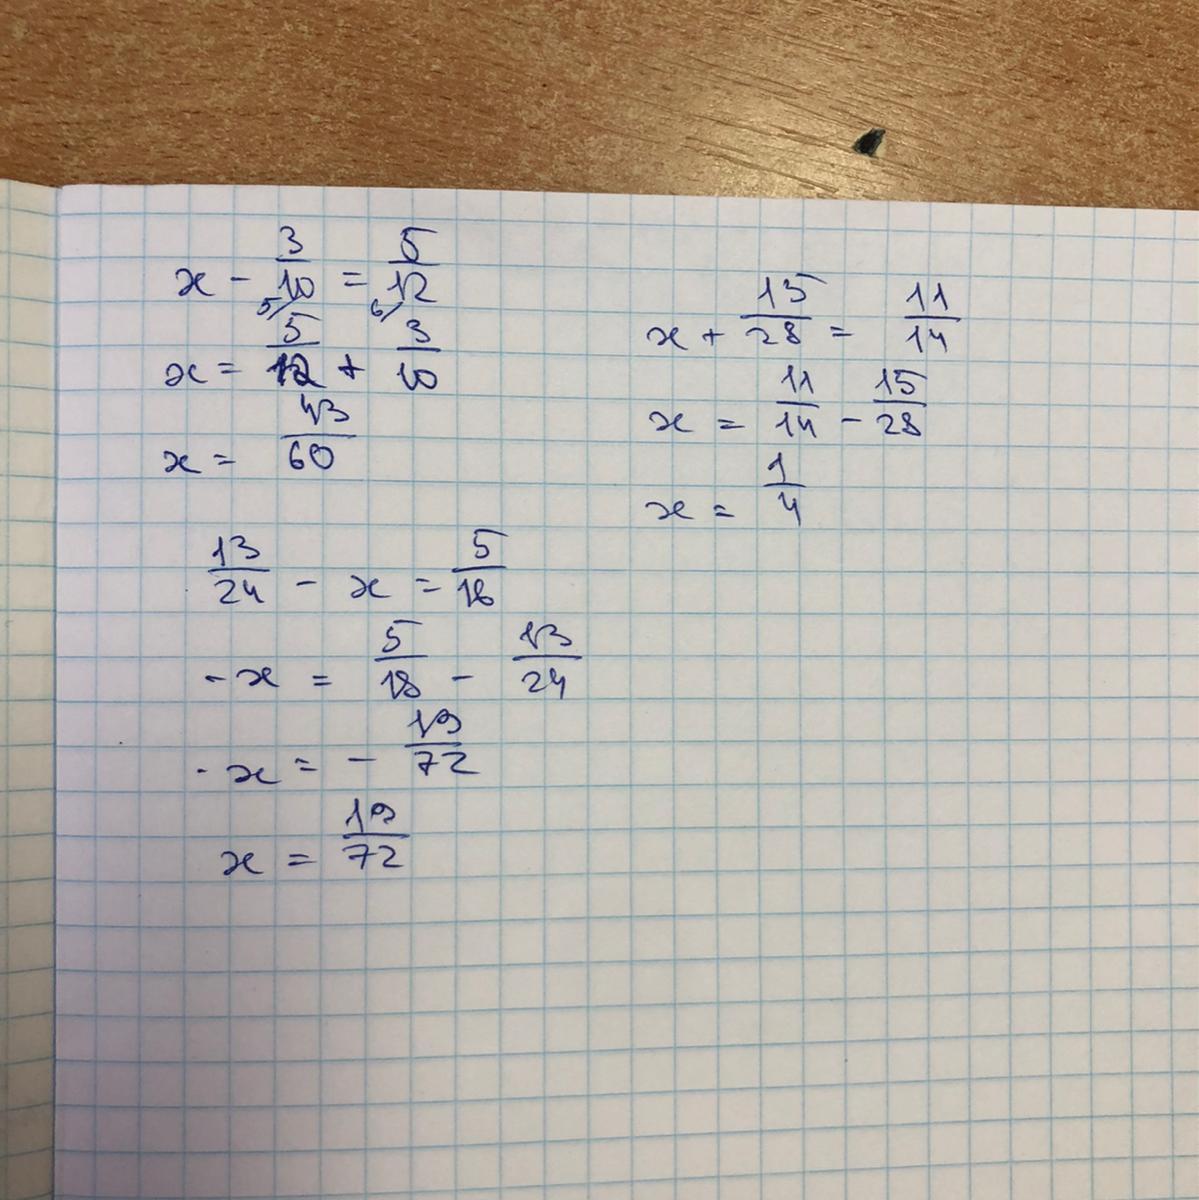 x - 3/10 = 5/12
5/ 6/
x = 5/12 + 3/10
x = 43/60
x + 15/28 = 11/14
x = 11/14 - 15/28
x = 1/4
13/24 - x = 5/18
-x = 5/18 - 13/24
-x = - 19/72
x = 19/72